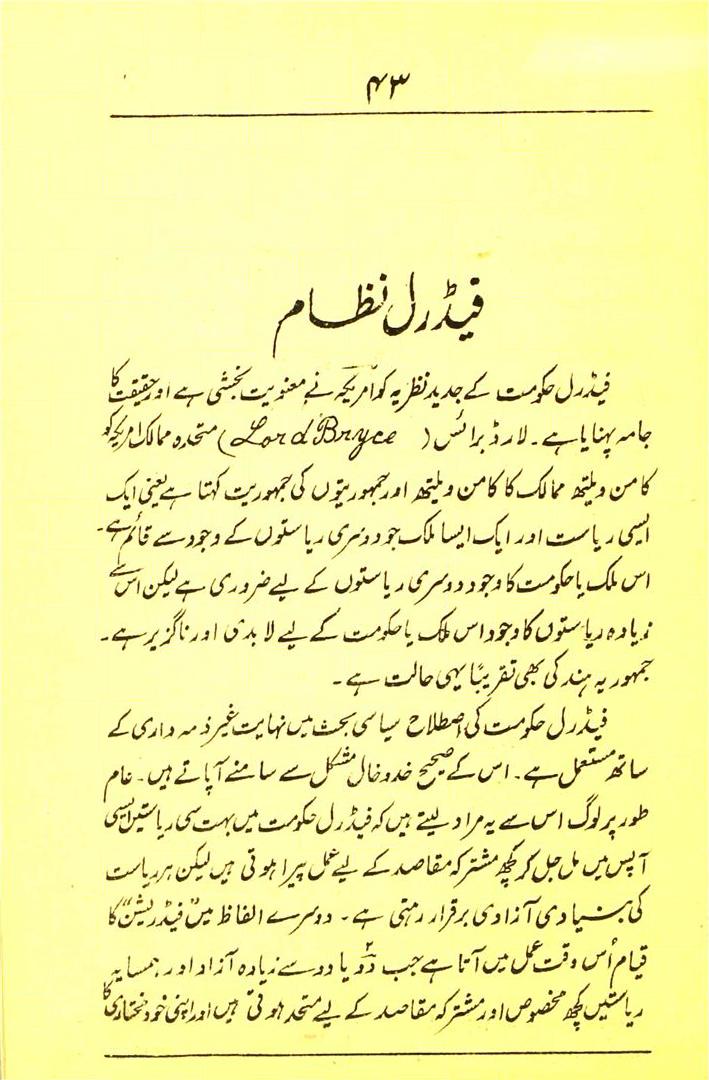 ۴۳
فیڈرل نظام
فیڈرل حکومت کے جدید نظریہ کو امریکہ نے معنویت بخشی ہے اور حقیقت کا
جامہ پہنایا ہے۔ لارڈ برائس (Lord Bryce) متحدہ ممالک امریکہ کو
کامن ویلتھ ممالک کا کامن ویلتھ اور جمہوریتوں کی جمہوریت کہتا ہے یعنی ایک
ایسی ریاست اور ایک ایسا ملک جو دوسری ریاستوں کے وجود سے قائم ہے۔
اس ملک یا حکومت کا وجود دوسری ریاستوں کے لیے ضروری ہے لیکن اس سے
زیادہ ریاستوں کا وجود اس ملک یا حکومت کے لیے لابدی اور ناگزیر ہے۔
جمہوریہ ہند کی بھی تقریباً یہی حالت ہے۔
فیڈرل حکومت کی اصطلاح سیاسی بحث میں نہایت غیر ذمہ داری کے
ساتھ مستعمل ہے۔ اس کے صحیح خدوخال مشکل سے سامنے آپاتے ہیں۔ عام
طور پر لوگ اس سے یہ مراد لیتے ہیں کہ فیڈرل حکومت میں بہت سی ریاستیں ایسی
آپس میں مل جل کر کچھ مشترکہ مقاصد کے لیے عمل پیرا ہوتی ہیں لیکن ہر ریاست
کی بنیادی آزادی برقرار رہتی ہے۔ دوسرے الفاظ میں "فیڈریشن" کا
قیام اُس وقت عمل میں آتا ہے جب دو یا دو سے زیادہ آزاد اور ہمسایہ
ریاستیں کچھ مخصوص اور مشترکہ مقاصد کے لیے متحد ہوتی ہیں اور اپنی خود مختاری کا